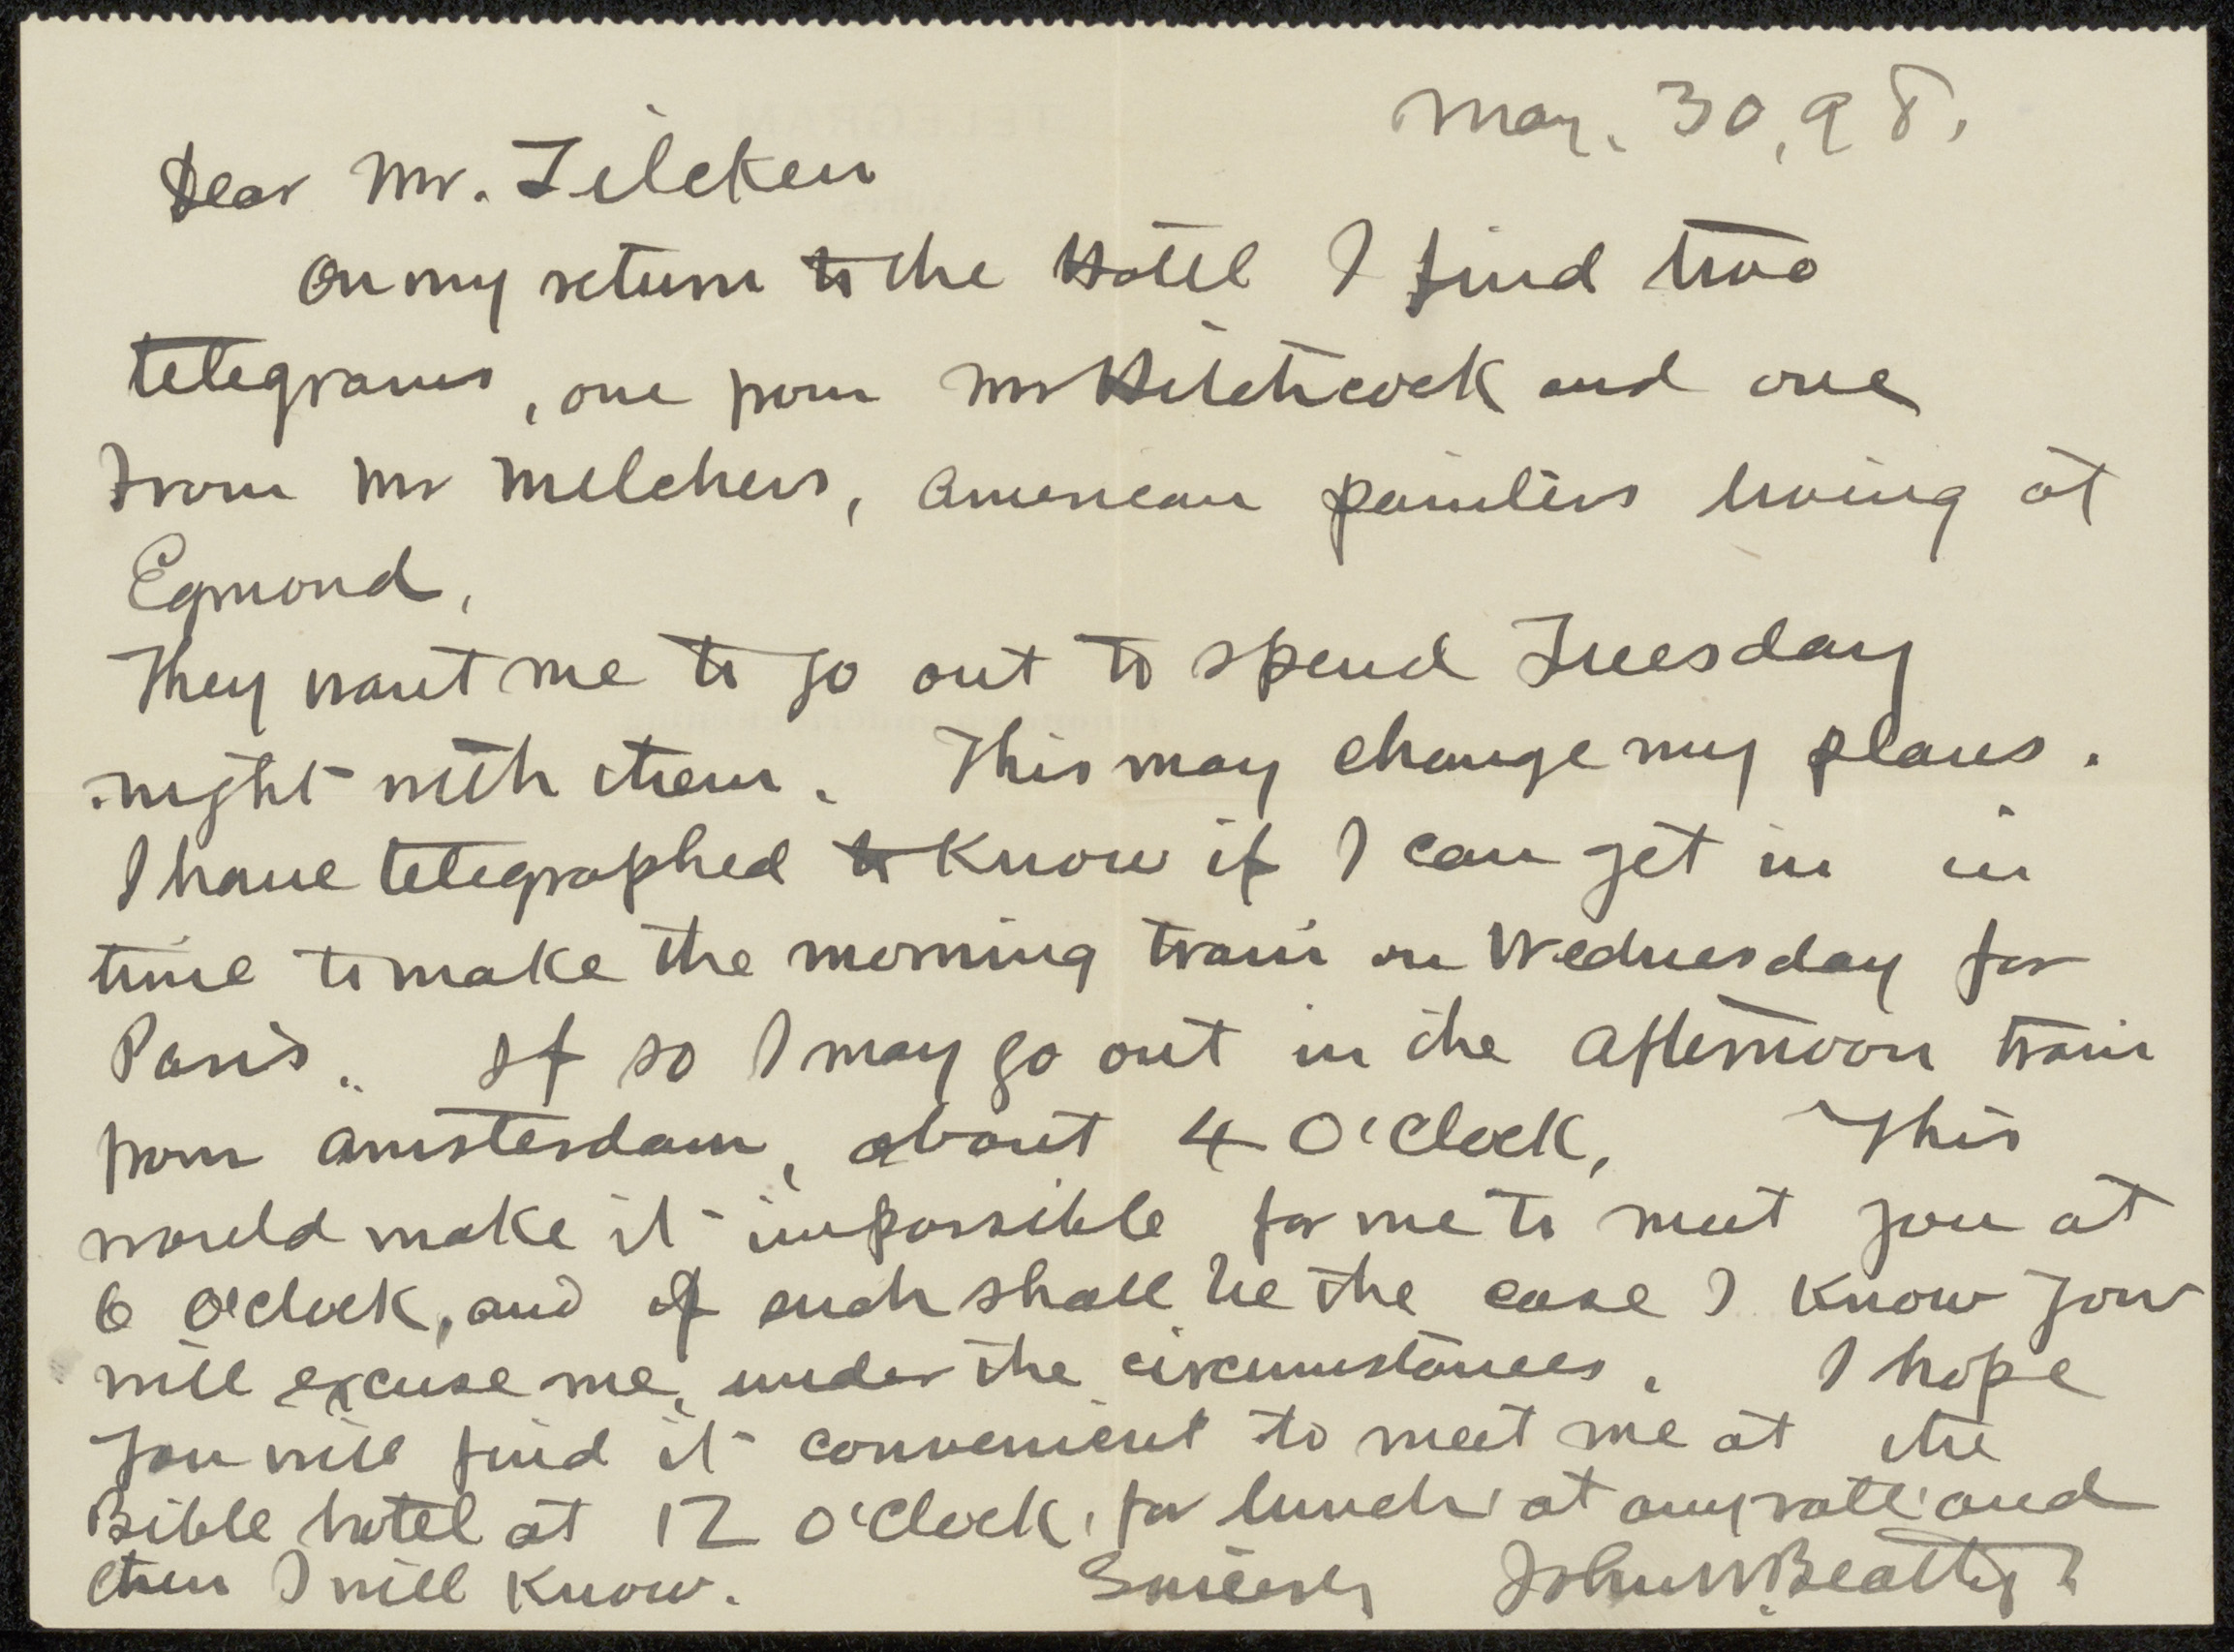 May. 30, 98.
Dear Mr. Zilcken
On my return to the Hotel I find two
telegrams, one from Mr Hitchcock and one
from Mr Melchers, American painters living at
Egmond.
They want me to go out to spend Tuesday
night with them. This may change my plans.
I have telegraphed to know if I can get in in
time to make the morning train on Wednesday for
Paris. If so I may go out in the afternoon train
from Amsterdam, about 4 O'Clock, This
would make it impossible for me to meet you at
6 O'clock, and if such shall be the case I know you
will excuse me, under the circumstances. I hope
you will find it convenient to meet me at the
Bible hotel at 12 O'Clock, for lunch, at any rate, and
then I will know. Sincerely John W. Beatty